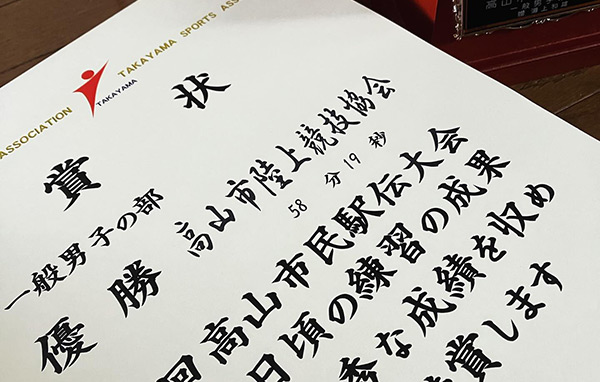 TAKAYAMA SPORTS ASS
ASSOCIATION
TAKAYAMA
賞状
一般男子の部
優勝
高山市陸上競技協会
58分19秒
回高山市民駅伝大会
日頃の練習の成果
秀な成績を収め
賞します
高山
一般男子